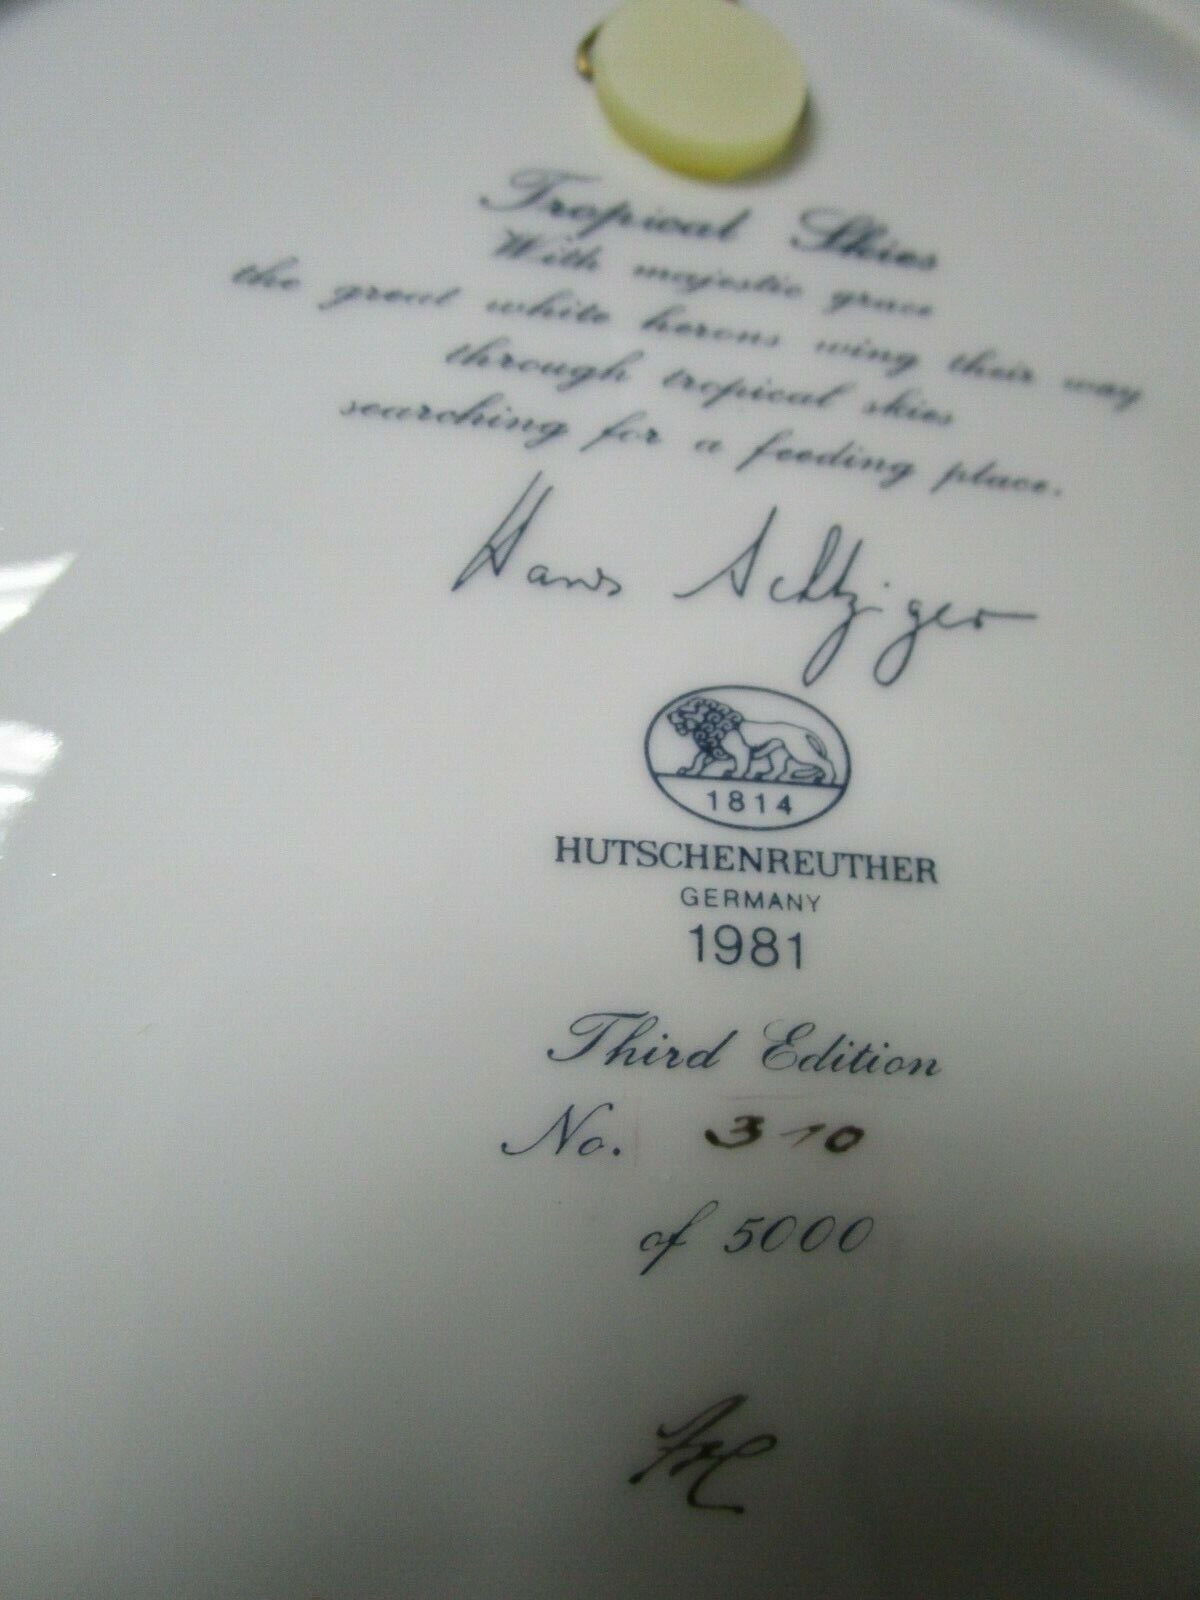 Tropical Skies
With majestic grace
the great white herons wing their way
through tropical skies
searching for a feeding place.
Hans Achtziger
1814
HUTSCHENREUTHER
GERMANY
1981
Third Edition
No. 310
of 5000